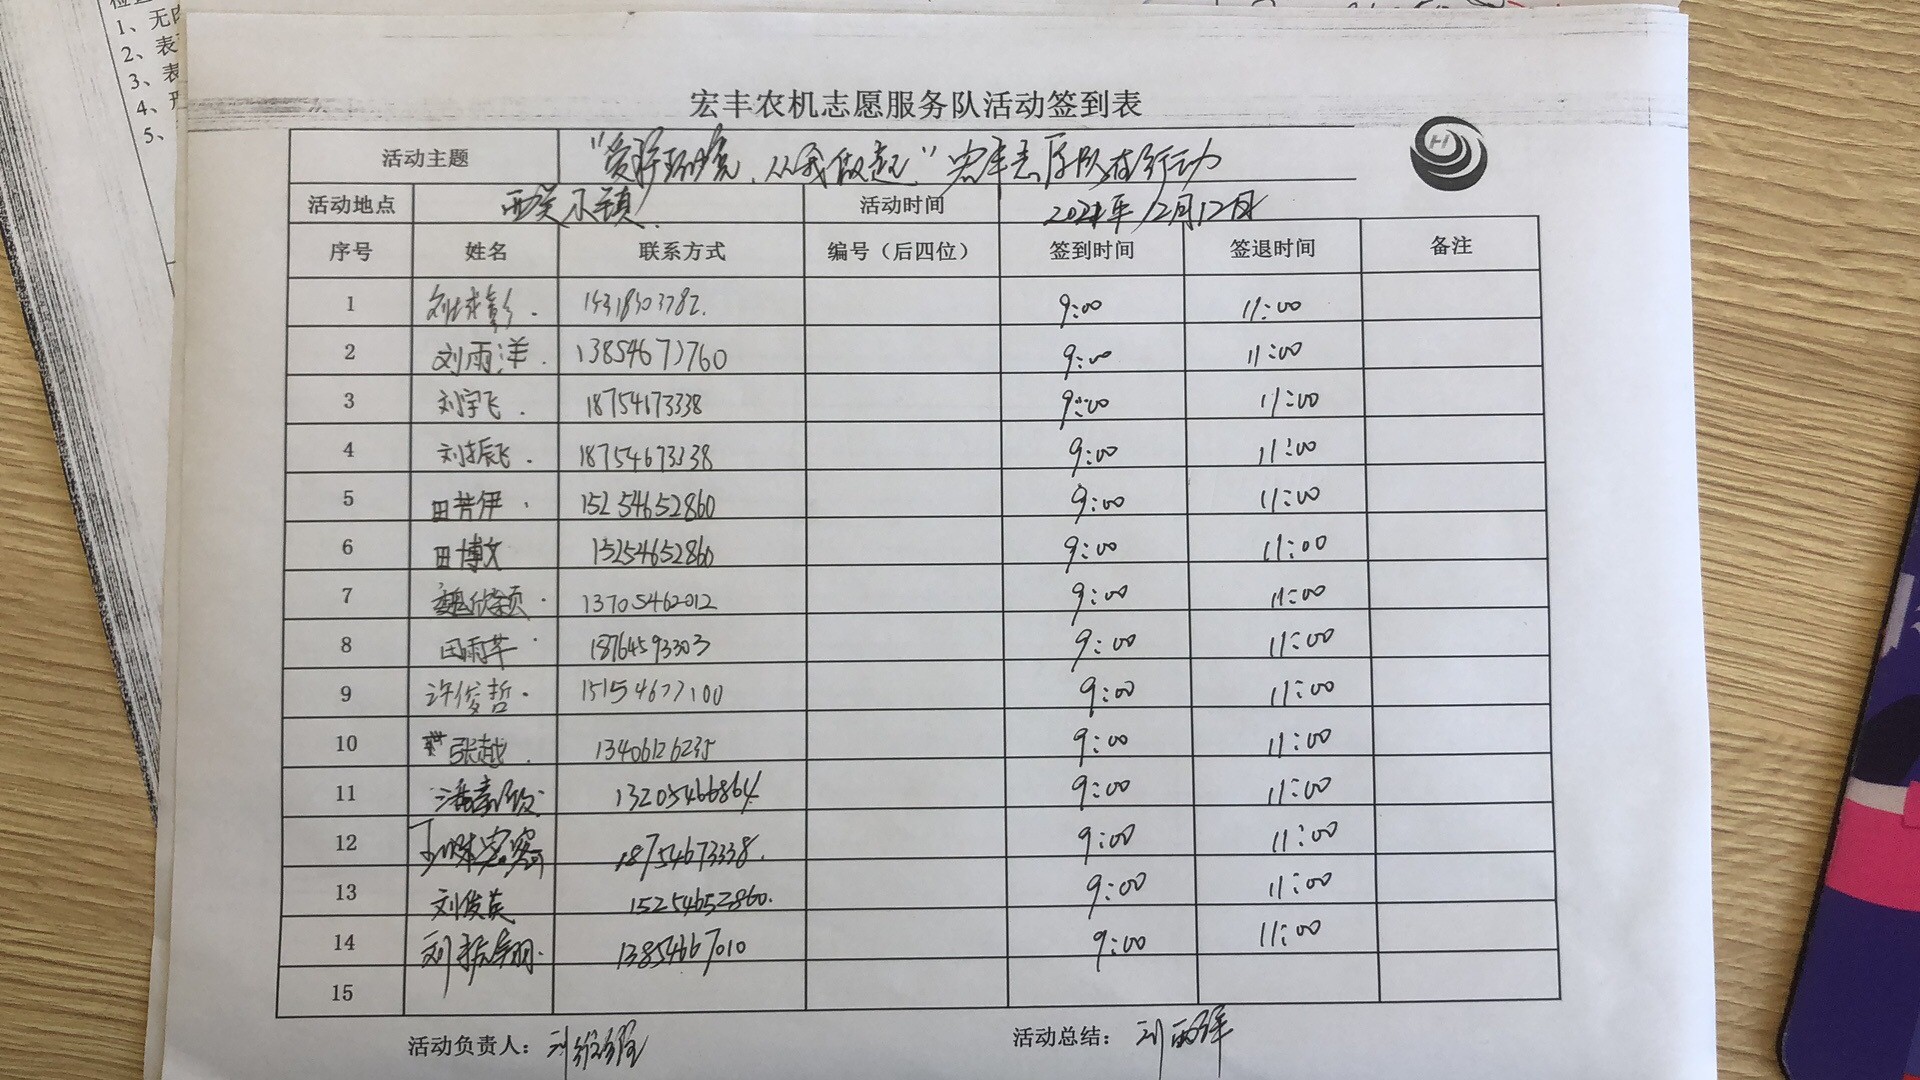 1、无
2、表
3、表
4、
5、
宏丰农机志愿服务队活动签到表
活动主题 "爱护环境，从我做起"宏丰志愿队在行动
活动地点 小镇 活动时间 2021年12月12日
序号 姓名 联系方式 编号（后四位） 签到时间 签退时间 备注
1 9:00 11:00
2 刘雨洋. 13854677760 9:00 11:00
3 刘宇飞. 18754673338 9:00 11:00
4 刘振飞. 18754673338 9:00 11:00
5 田芳伊. 15254652860 9:00 11:00
6 田博文 15254652860 9:00 11:00
7 魏欣颖. 13705462012 9:00 11:00
8 田雨芊. 18764593303 9:00 11:00
9 许俊哲. 15154677100 9:00 11:00
10 张越. 13406126235 9:00 11:00
11 13205466864. 9:00 11:00
12 18754673338. 9:00 11:00
13 刘俊英 15254652860. 9:00 11:00
14 13854667010 9:00 11:00
15
活动负责人： 活动总结：刘雨洋